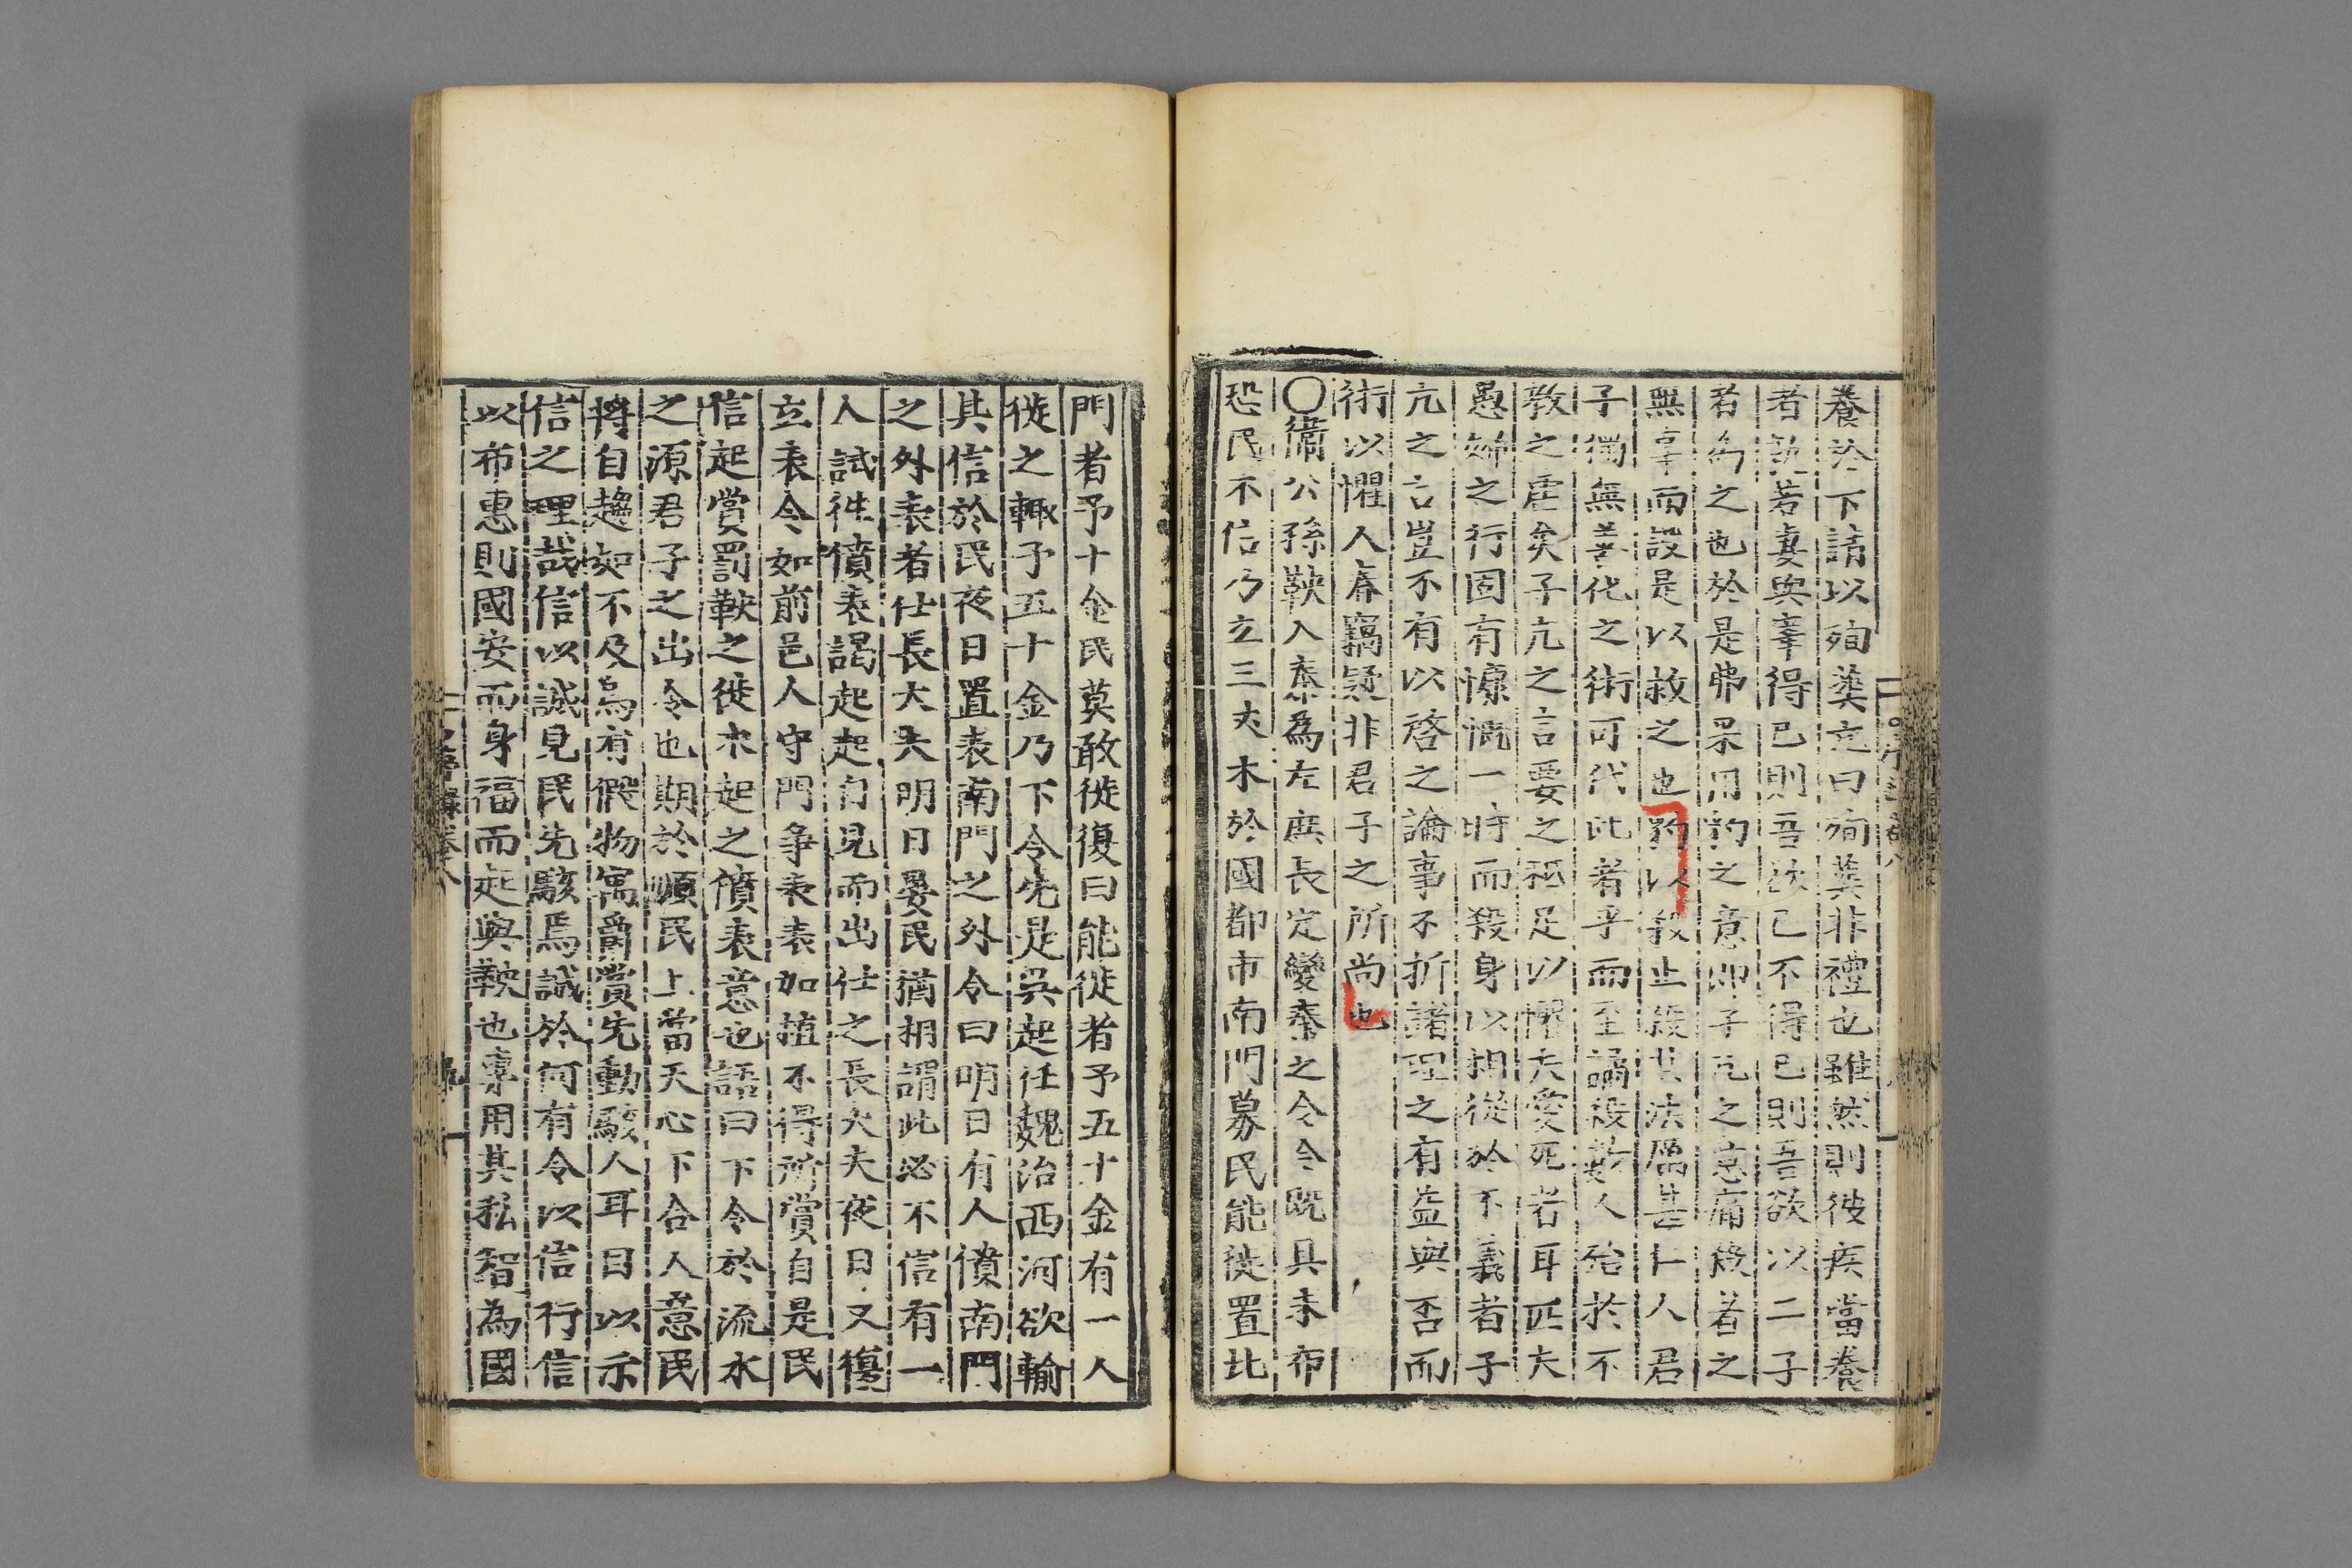 養於下請以殉塟亢曰殉塟非禮也雖然則彼疾當養
者孰若妻與宰得已則吾欲已不得已則吾欲以二子
者為之也於是弗果用豹之意即子亢之意痛殺者之
無辜而設是以救之也豹以殺止殺其法厲甚仁人君
子獨無善化之術可代此者乎而至譎殺數人殆於不
教之虐矣子亢之言要之秪足以懼夫愛死者耳匹夫
愚婦之行固有慷慨一時而殺身以相從於不義者子
亢之言豈不有以啓之論事不折諸理之有益與否而
術以懼人脊竊疑非君子之所尚也
〇衛公孫鞅入秦爲左庶長定變秦之令令既具未布
恐民不信乃立三丈木於國都市南門募民能徙置北
門者予十金民莫敢徙復曰能徙者予五十金有一人
徙之輙予五十金乃下令先是吳起任魏治西河欲輸
其信於民夜日置表南門之外令曰明日有人僨南門
之外表者仕長大夫明日晏民猶相謂此必不信有一
人試徃僨表謁起起自見而出仕之長大夫夜日又復
立表令如前邑人守門爭表表如植不得所賞自是民
信起賞罰鞅之徙木起之僨表意也語曰下令於流水
之源君子之出令也期於順民上當天心下合人意民
將自趨如不及烏有假物寓爵賞先動駭人耳目以示
信之理哉信以誠見民先駭焉誠於何有令以信行信
以布惠則國安而身福而起與鞅也專用其私智為國